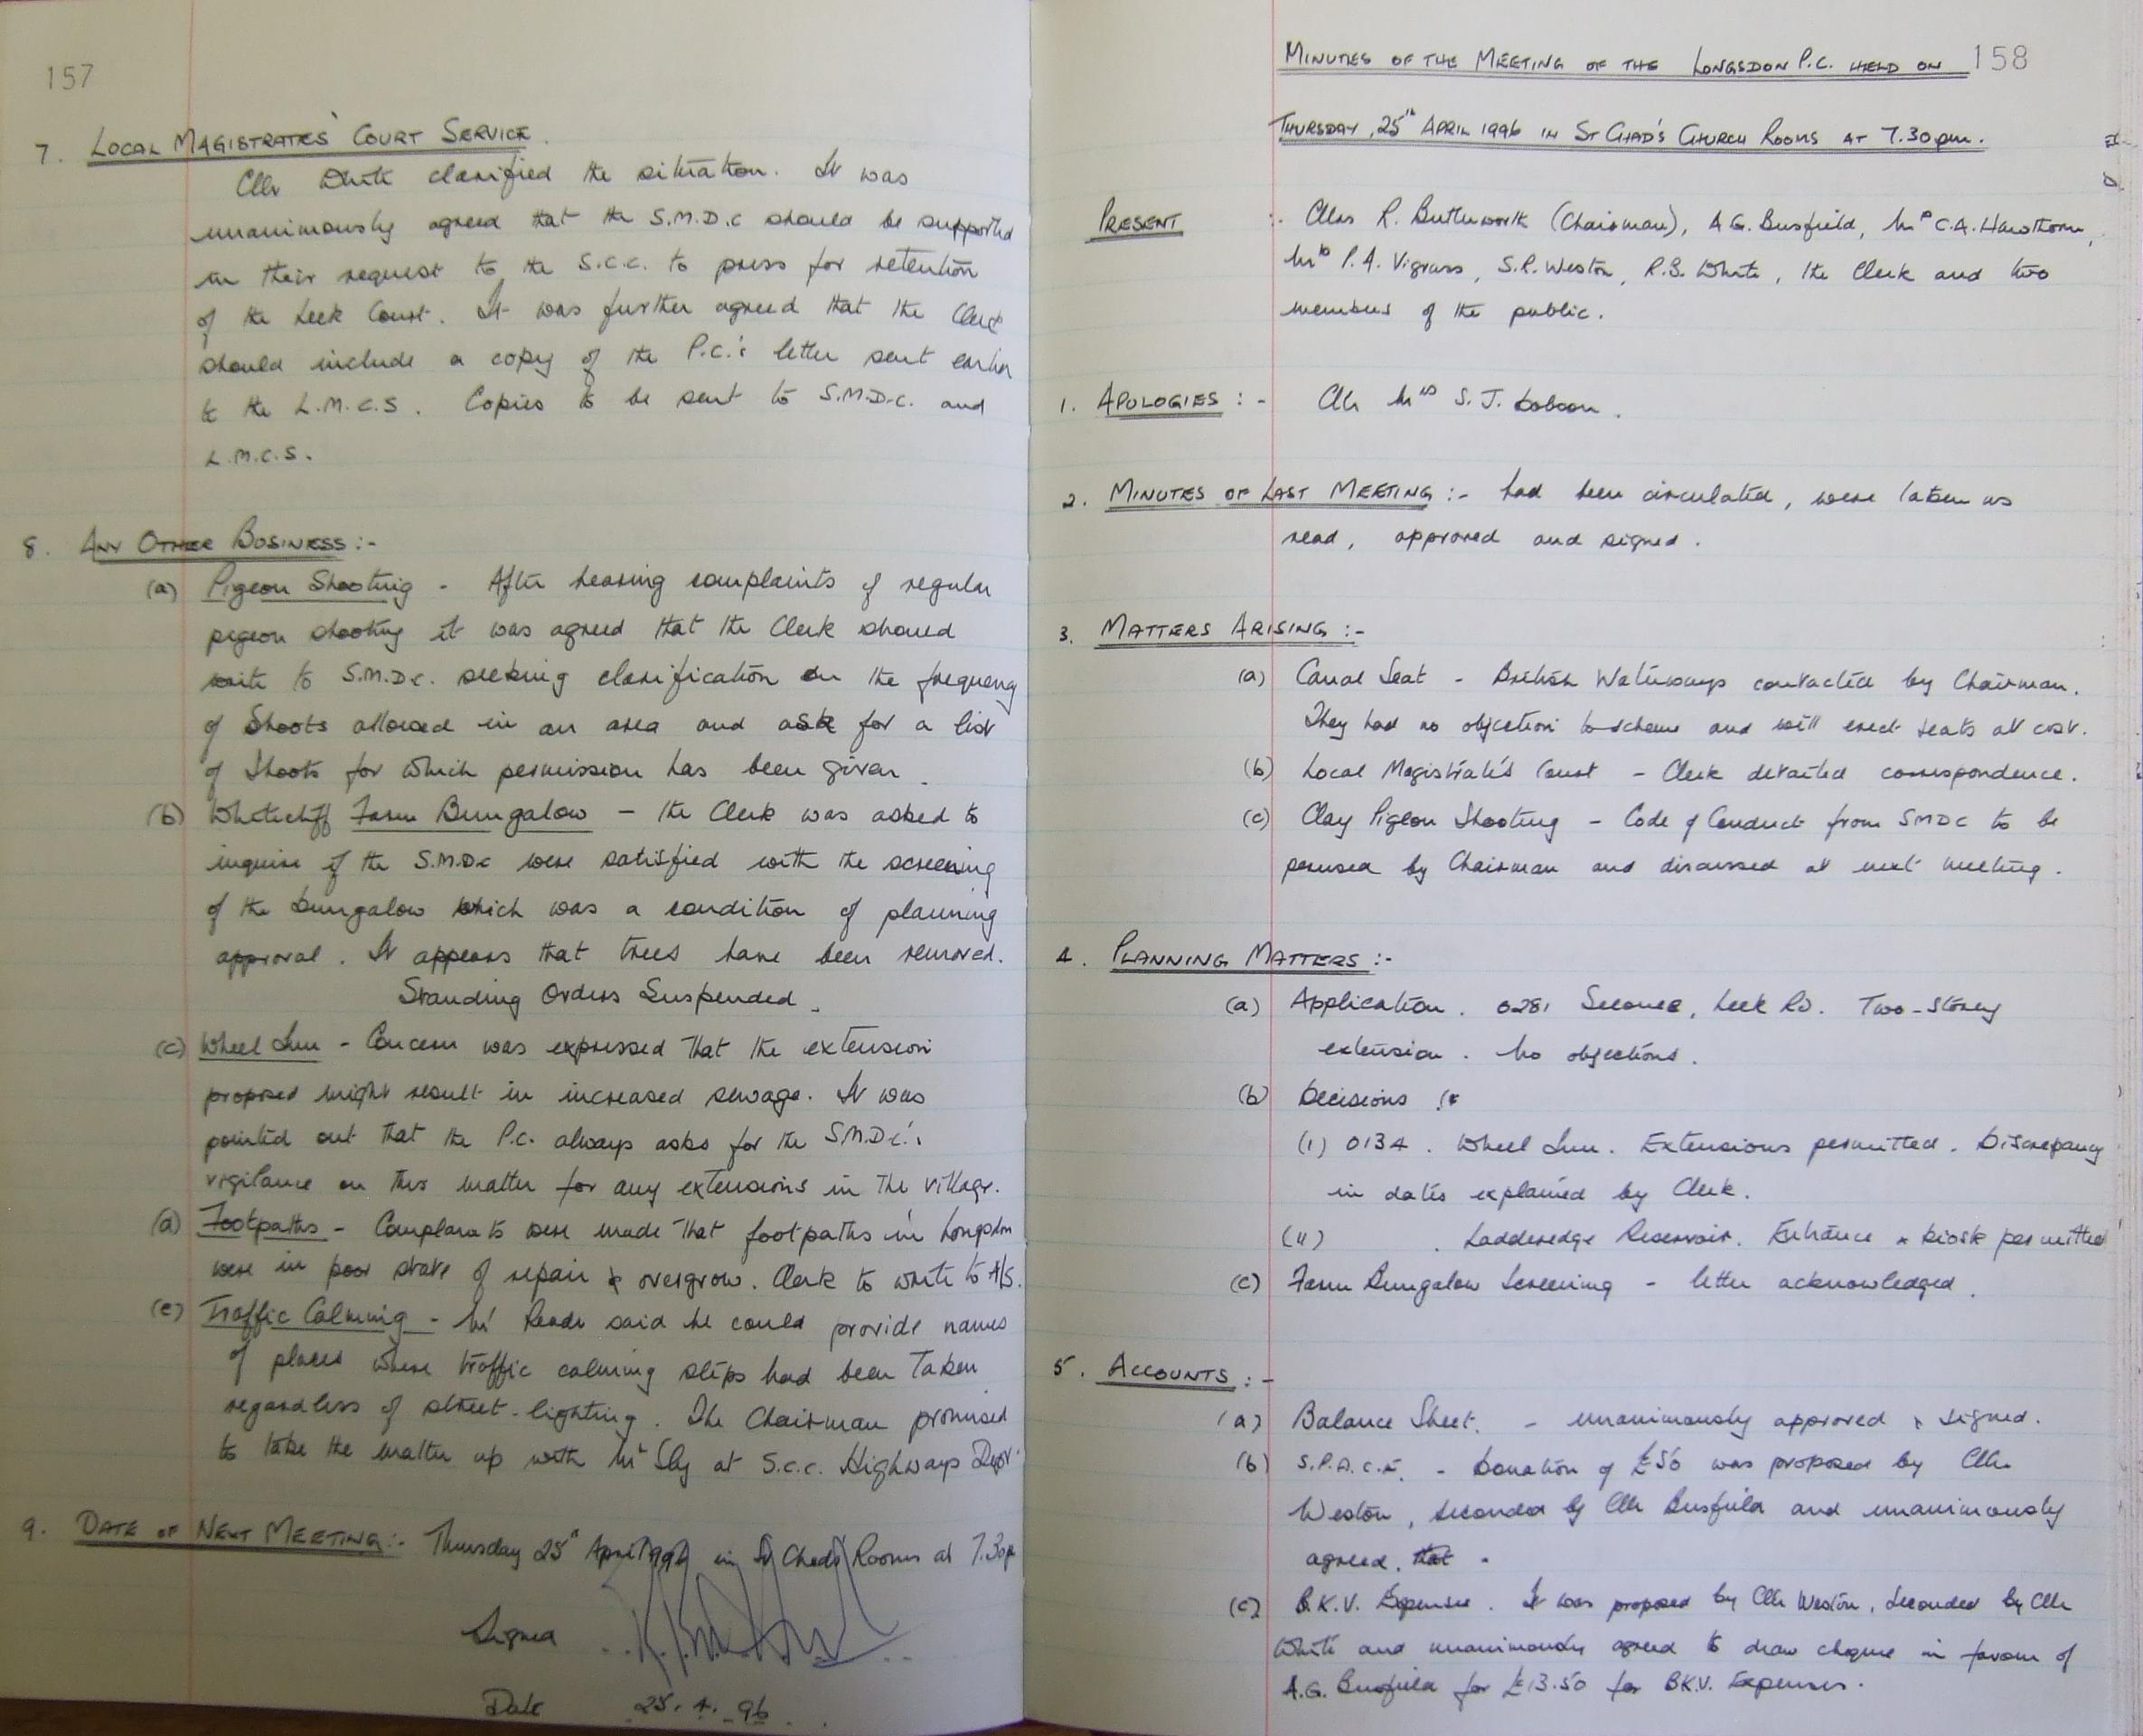 157
7. LOCAL MAGISTRATES' COURT SERVICE.
Cllr White clarified the situation. It was
unanimously agreed that the S.M.D.C should be supported
in their request to the S.C.C. to press for retention
of the Leek Court. It was further agreed that the Clerk
should include a copy of the P.C.'s letter sent earlier
to the L.M.C.S. Copies to be sent to S.M.D.C. and
L.M.C.S.
8. ANY OTHER BUSINESS :-
(a) Pigeon Shooting - After hearing complaints of regular
pigeon shooting it was agreed that the Clerk should
write to S.M.D.C. seeking clarification on the frequency
of Shoots allowed in an area and ask for a list
of Shoots for which permission has been given.
(b) Whitecliff Farm Bungalow - the Clerk was asked to
inquire if the S.M.D.C were satisfied with the screening
of the bungalow which was a condition of planning
approval. It appears that trees have been removed.
Standing Orders Suspended.
(c) Wheel Inn - Concern was expressed that the extension
proposed might result in increased sewage. It was
pointed out that the P.C. always asks for the S.M.D.C.'s
vigilance on this matter for any extensions in the village.
(d) Footpaths - Complaints were made that footpaths in Longsdon
were in poor state of repair & overgrow. Clerk to write to A/S.
(e) Traffic Calming - Mr Reade said he could provide names
of places where traffic calming steps had been taken
regardless of street-lighting. The Chairman promised
to take the matter up with Mr Sly at S.C.C. Highways Dept.
9. DATE OF NEXT MEETING :- Thursday 25th April 1996 in St Chad's Rooms at 7.30p
Signed
Date 25. 4. 96
MINUTES OF THE MEETING OF THE LONGSDON P.C. HELD ON 158
THURSDAY, 25th APRIL 1996 IN ST CHAD'S CHURCH ROOMS AT 7.30pm.
PRESENT :- Cllrs R. Butterworth (Chairman), A.G. Busfield, Mrs C.A. Hawthorn,
Mrs P.A. Vigrass, S.R. Weston, R.B. White, the Clerk and two
members of the public.
1. APOLOGIES :- Cllr Mrs S.J. Dobson.
2. MINUTES OF LAST MEETING :- had been circulated, were taken as
read, approved and signed.
3. MATTERS ARISING :-
(a) Canal Seat - British Waterways contacted by Chairman.
They had no objection to scheme and will erect seats at cost.
(b) Local Magistrate's Court - Clerk detailed correspondence.
(c) Clay Pigeon Shooting - Code of Conduct from SMDC to be
perused by Chairman and discussed at next meeting.
4. PLANNING MATTERS :-
(a) Application. 0281 Leek Rd. Two-storey
extension. No objections.
(b) Decisions :-
(i) 0134. Wheel Inn. Extensions permitted. Discrepancy
in dates explained by Clerk.
(ii) . Ladderedge Reservoir. Entrance & kiosk permitted
(c) Farm Bungalow Screening - letter acknowledged.
5. ACCOUNTS :-
(a) Balance Sheet. - unanimously approved & signed.
(b) S.P.A.C.E. - Donation of £50 was proposed by Cllr
Weston, seconded by Cllr Busfield and unanimously
agreed. that .
(c) B.K.V. Expenses. It was proposed by Cllr Weston, seconded by Cllr
White and unanimously agreed to draw cheque in favour of
A.G. Busfield for £13.50 for B.K.V. Expenses.